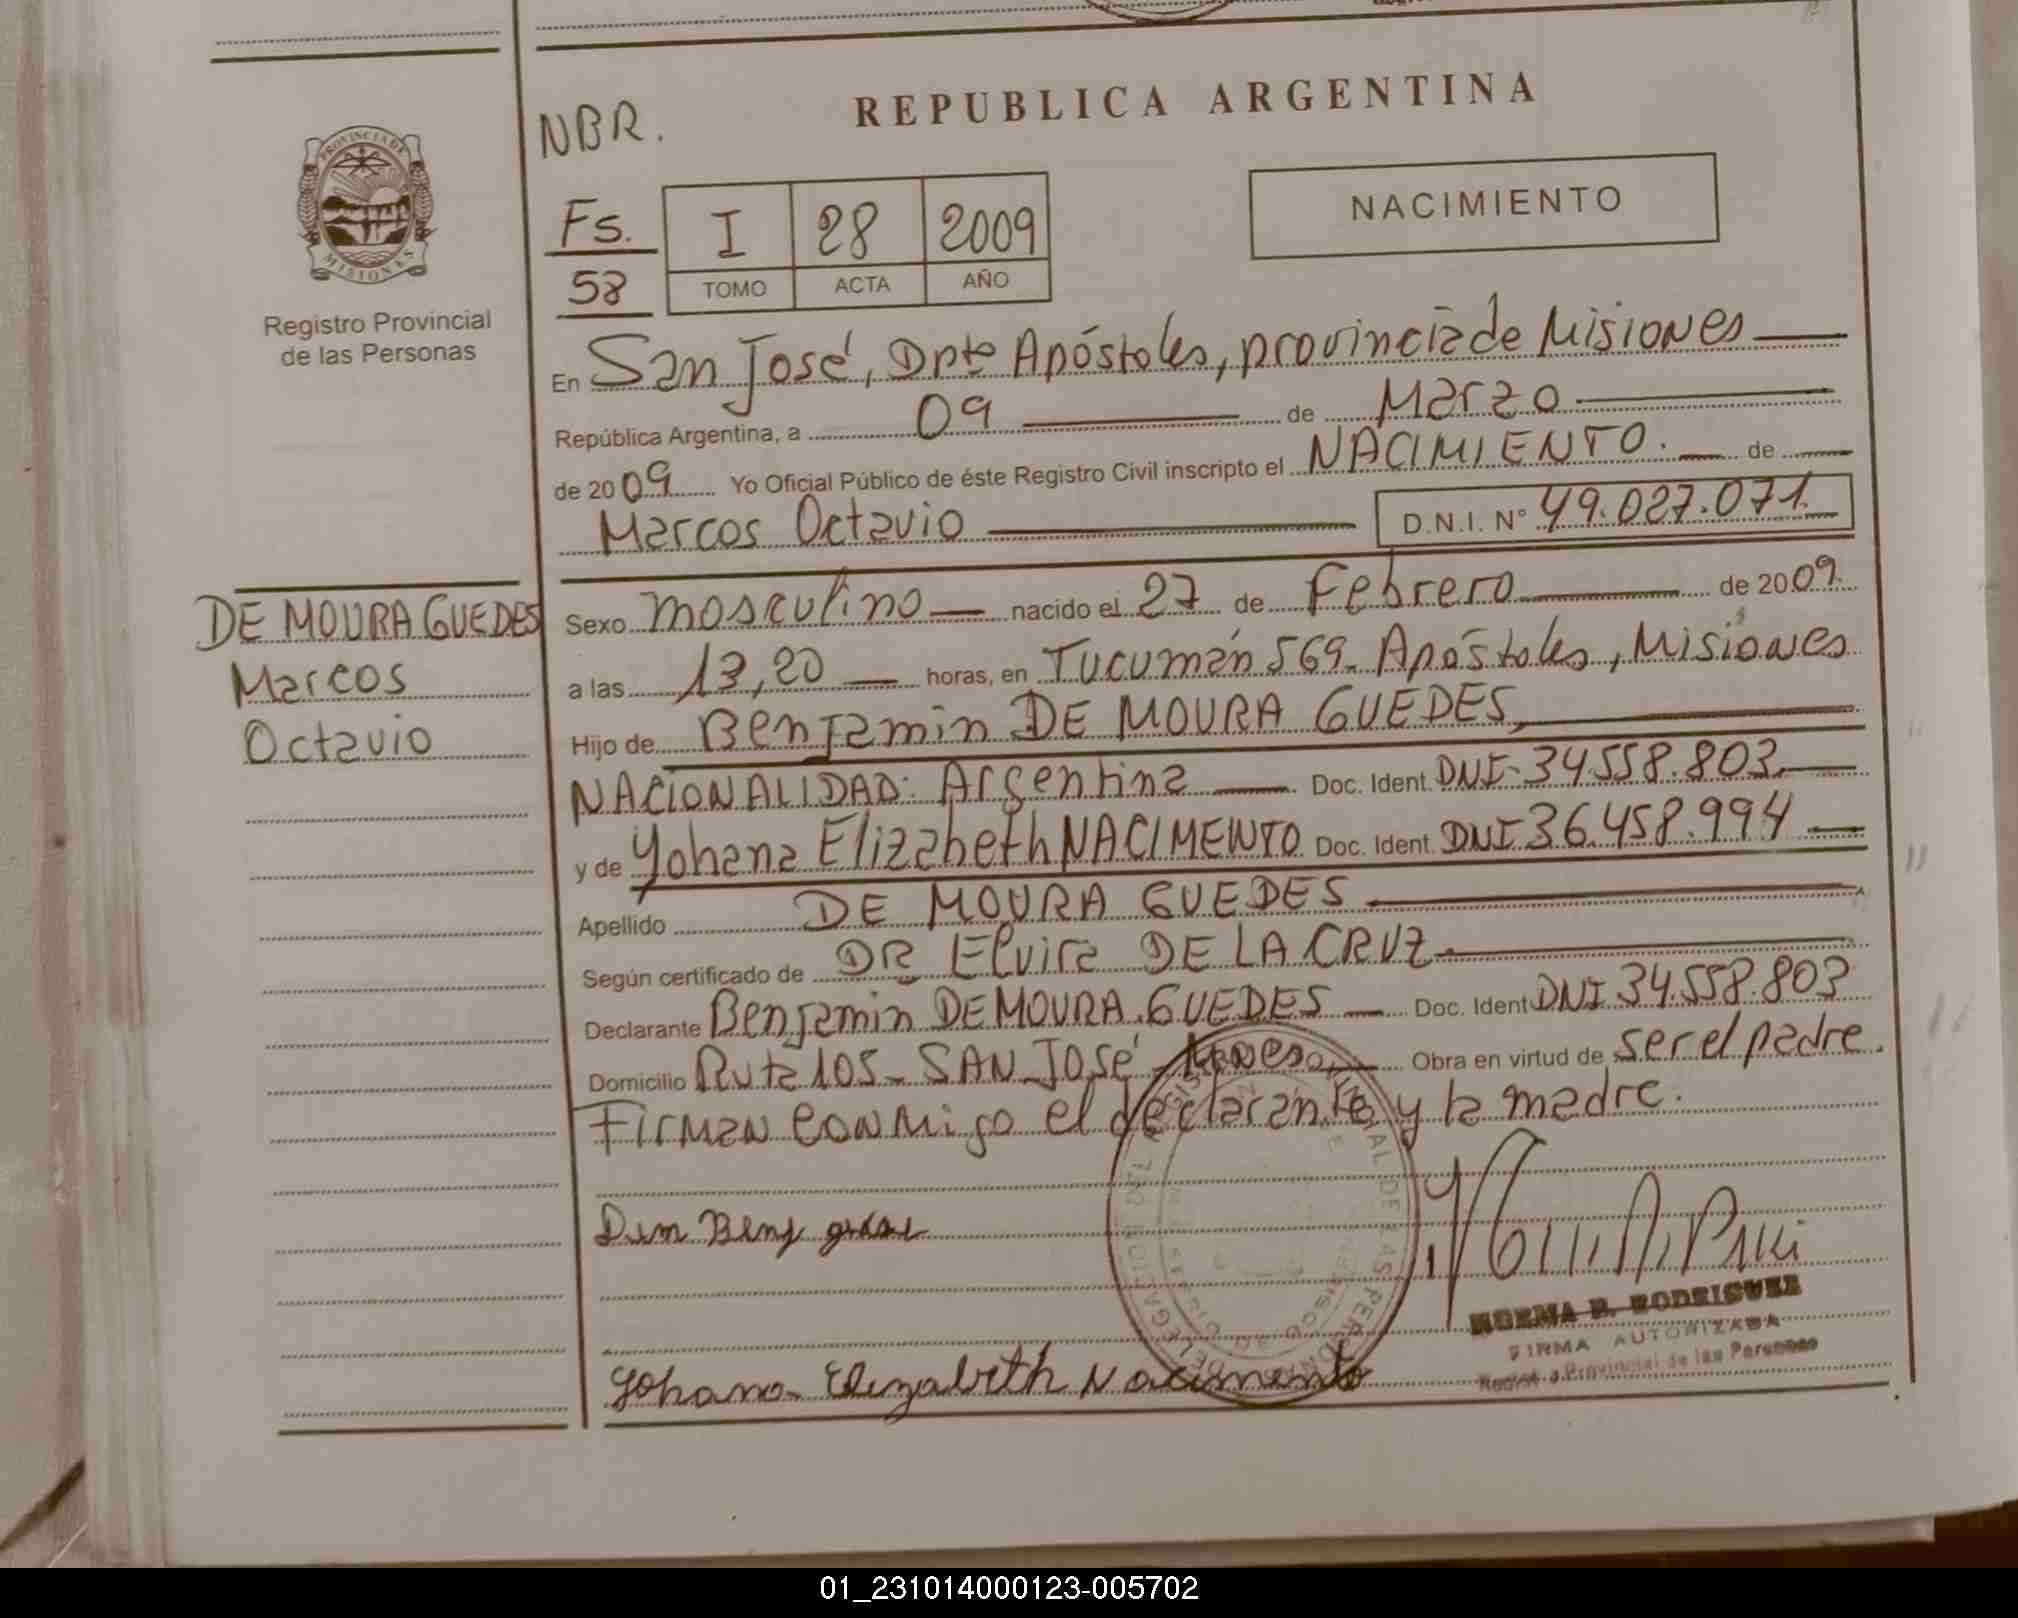 REPUBLICA ARGENTINA
NBR.
PROVINCIA DE MISIONES
Registro Provincial
de las Personas
Fs.
58
I 28 2009
TOMO ACTA AÑO
NACIMIENTO
En San José, Dpto Apóstoles, provincia de Misiones
República Argentina, a 09 de Marzo
de 2009 Yo Oficial Público de éste Registro Civil inscripto el NACIMIENTO. de
Marcos Octavio D.N.I. N° 49.027.071.
DE MOURA GUEDES
Marcos
Octavio
Sexo masculino nacido el 27 de Febrero de 2009.
a las 13,20 horas, en Tucumán 569. Apóstoles, Misiones
Hijo de Benjamin DE MOURA GUEDES,
NACIONALIDAD: Argentina Doc. Ident. DNI- 34.558.803.
y de Yohana Elizabeth NACIMENTO Doc. Ident. DNI 36.458.994
Apellido DE MOURA GUEDES
Según certificado de DR Elvira DE LA CRUZ
Declarante Benjamin DE MOURA GUEDES Doc. Ident DNI 34.558.803
Domicilio Ruta 105 - SAN JOSÉ - Mnes Obra en virtud de ser el padre.
Firman conmigo el declarante y la madre.
Yohana Elizabeth Nacimento
NORMA B. RODRIGUEZ
FIRMA AUTORIZADA
Registro Provincial de las Personas
01_231014000123-005702